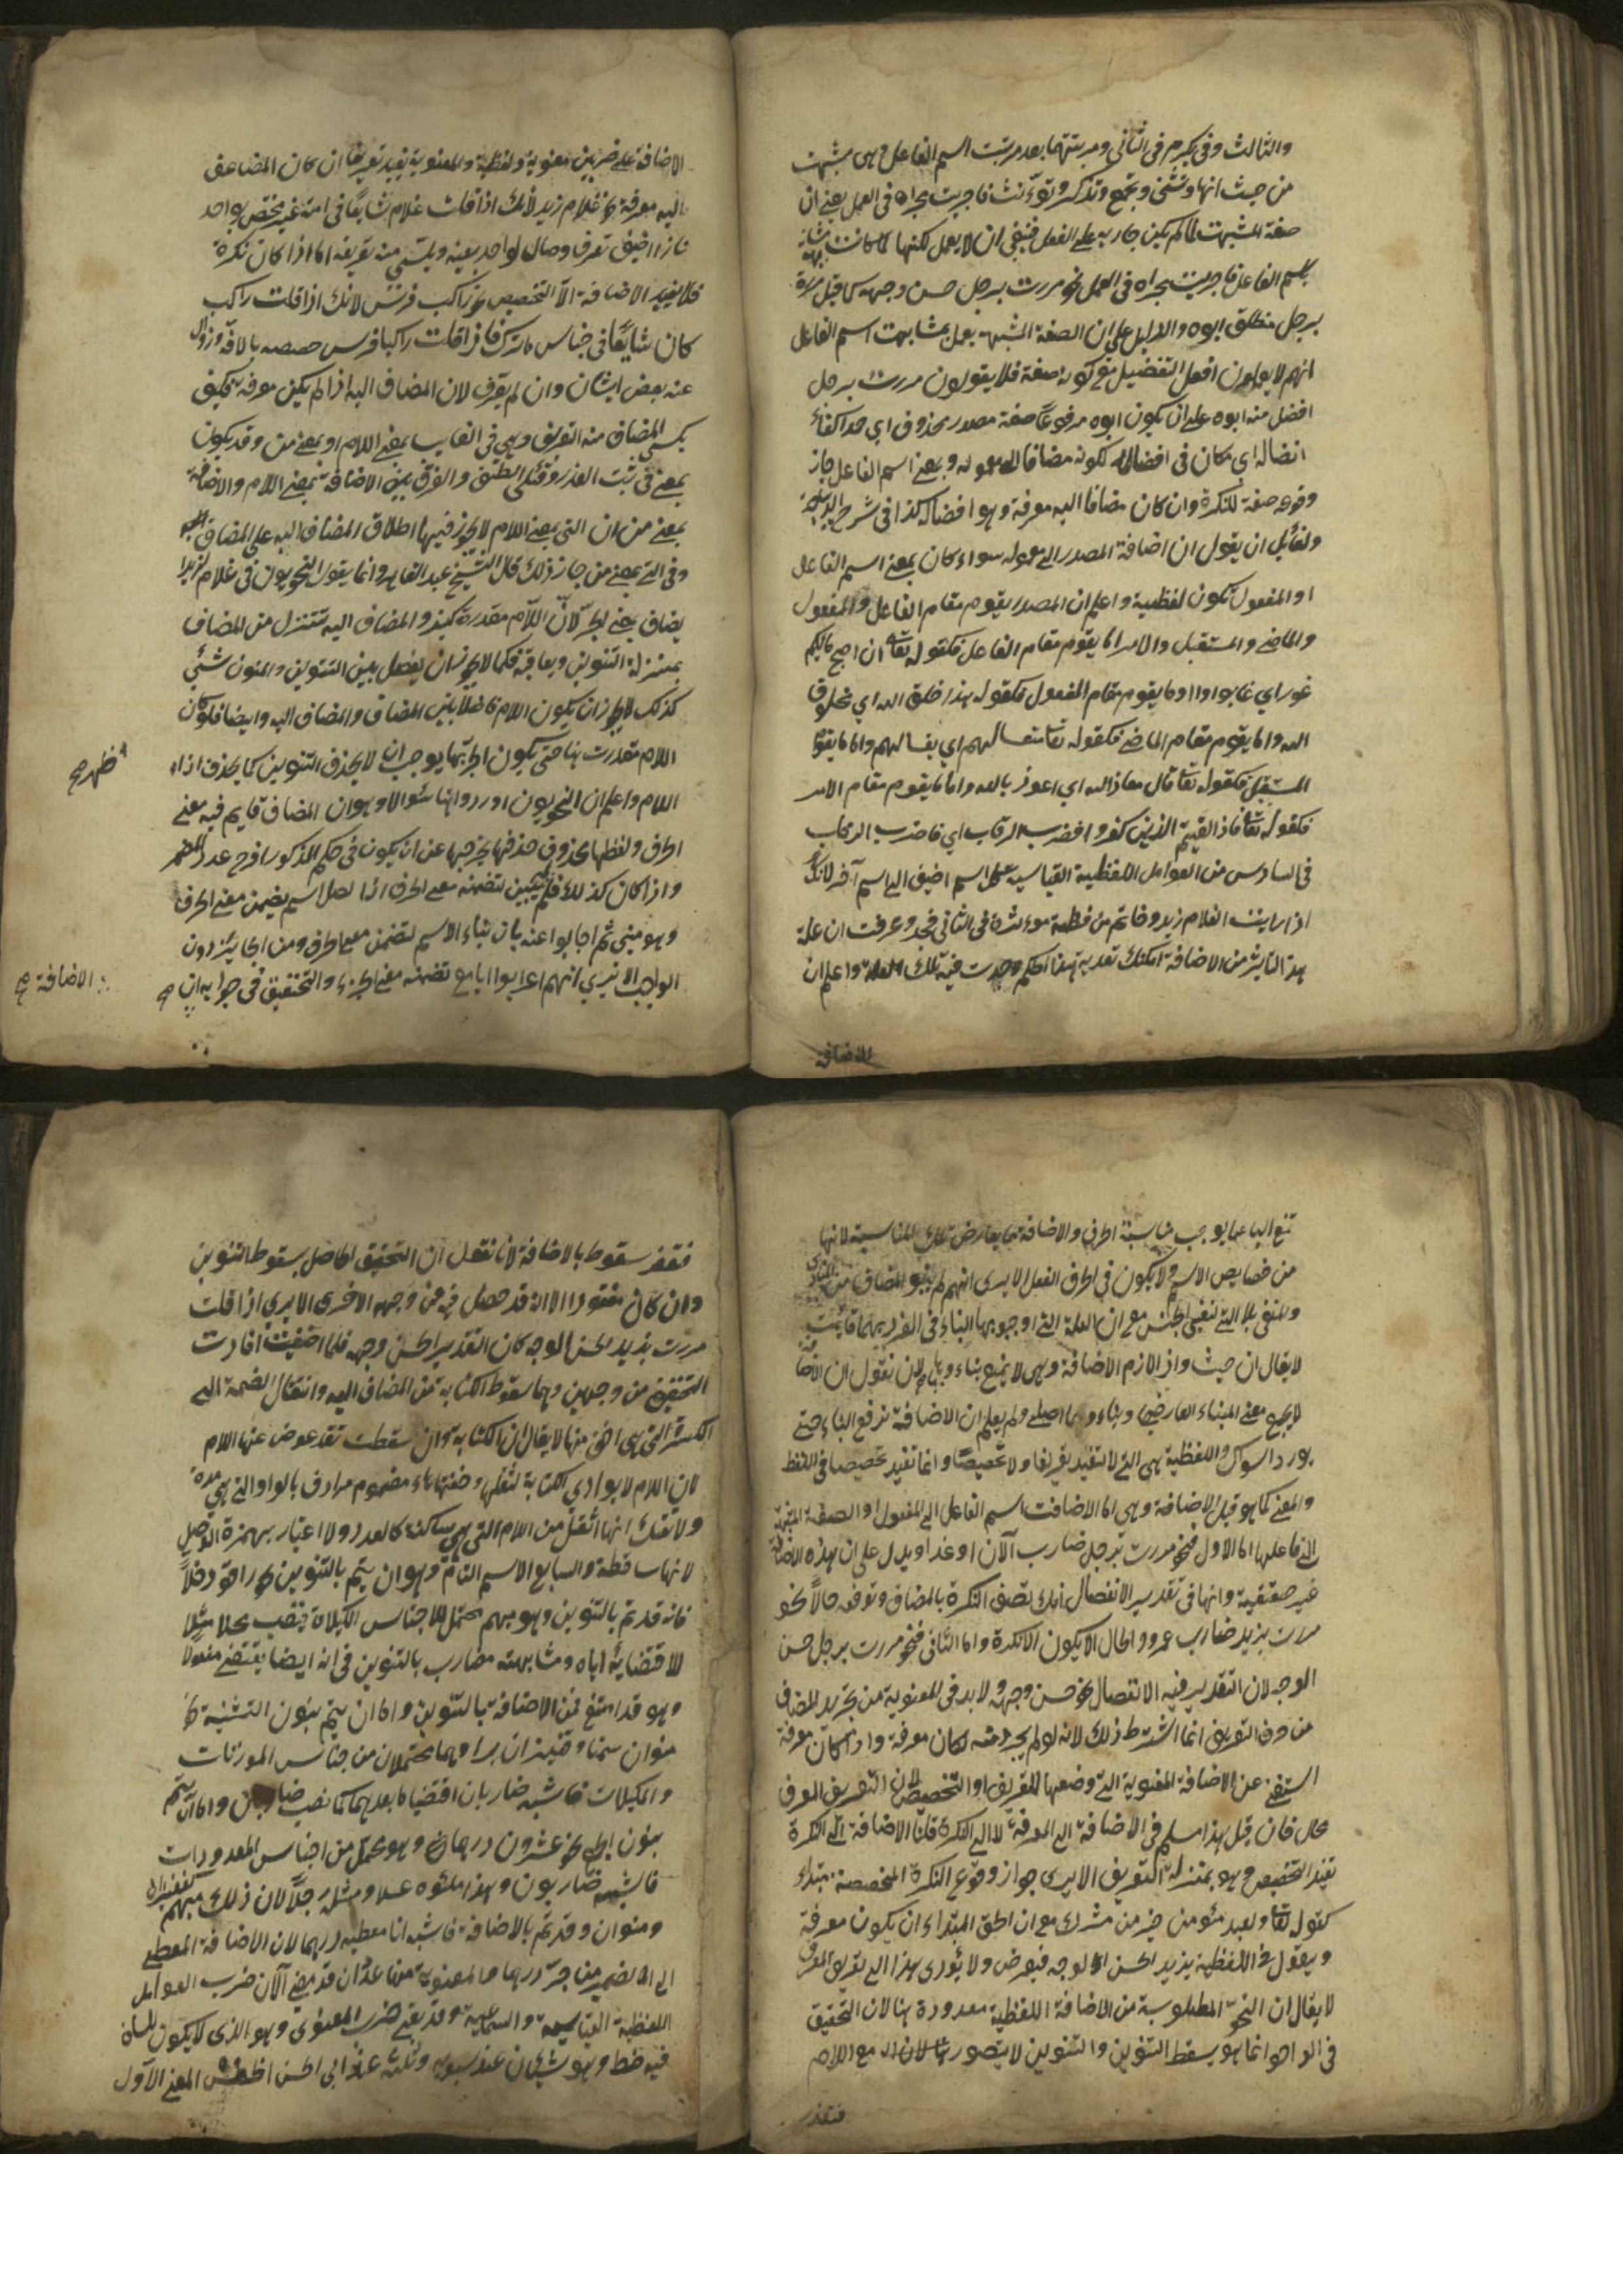 والثالث وفى يكرم فى الثانى ومرتبتهما بعد مرتبت اسم الفاعل وهى مشبهت
من حيث انها وتثنى وتجمع وتذكر وتؤنث فاجريت مجراه فى العمل يعنى ان
صفة المشبهت لما لم يكن جاريه على الفعل فينبغى ان لا يعمل لكنها لما كانت مشابهة
باسم الفاعل فاجريت مجراه فى العمل نحو مررت برجل حسن وجهه كما قيل مررت
برجل منطلق ابوه والدليل على ان الصفة المشبهه يعمل بمشابهت اسم الفاعل
انهم لا يعملون افعل التفضيل مع كونه صفة فلا يقولون مررت برجل
افضل منه ابوه على ان يكون ابوه مرفوعا صفة مصدر محذوف اى
افضاله اى مكان فى افضاله لكونه مضافا الى معموله وبمعنى اسم الفاعل جاز
وقوعه صفة للنكرة وان كان مضافا اليه معرفة وهو افضاله كذا فى شرح
ولقائل ان يقول ان اضافة المصدر الى معموله سواء كان بمعنى اسم الفاعل
او المفعول تكون لفظية واعلم ان المصدر يقوم مقام الفاعل والمفعول
والماضى والمستقبل والامر اما يقوم مقام الفاعل فكقوله تعا ان اصبح ماؤكم
غورا اى غايرا واما يقوم مقام المفعول فكقوله هذا خلق الله اى مخلوق
الله واما يقوم مقام الماضى فكقوله تعا فتعسا لهم اى واما ما يقوم
المستقبل فكقوله تعا قال معاذ الله اى اعوذ بالله واما ما يقوم مقام الامر
فكقوله تعا فاذا لقيتم الذين كفروا فضرب الرقاب اى فاضرب الرقاب
فى السادس من العوامل اللفظية القياسية كل اسم اضيف الى اسم آخر لانك
اذا رايت الغلام زيد وخاتم من فضة موءثرة فى الثانى فجر وعرفت ان علة
هذا التاثير من الاضافة امكنك تعدية هذا الحكم وجدت فيه تلك العلة واعلم ان
الاضافة
الاضافة على ضربين معنوية ولفظية والمعنوية يفيد تعريفا ان كان المضاف
اليه معرفة نحو غلام زيد لانك اذا قلت غلام شايعا فى امة غير مختص بواحد
فاذا اضيف تعرف وصار لواحد بعينه ويكتسى منه تعريفه اما اذا كان نكرة
فلا يفيد الاضافة الا التخصيص نحو راكب فرس لانك اذا قلت راكب
كان شايعا فى اجناس فاذا قلت راكبا فرس خصصه بالاضافة وزوال
عنه بعض ايشان وان لم يعرف لان المضاف اليه اذا لم يكن معرفة فكيف
يكسى المضاف منه التعريف وهى فى الغالب بمعنى اللام او بمعنى من وقد يكون
بمعنى فى ثبت الغدر وقتلى الطف والفرق بين الاضافة بمعنى اللام والاضافة
بمعنى من ان التى بمعنى اللام لا يجوز فيها اطلاق المضاف اليه على المضاف
وفى التى بمعنى من جاز ذلك قال الشيخ عبد القاهر وانما يقول النحويون فى غلام لزيد
يضاف بمعنى لجر لان اللام مقدرة كيف والمضاف اليه تتنزل من المضاف
بمنزلة التنوين ويعاقبه فكما لا يجوز ان يفصل بين التنوين والمنون شئ
كذلك لا يجوز ان يكون اللام فاصلا بين المضاف والمضاف اليه وايضا فلو كان
اللام مقدرت هنا حتى يكون الجر بها يوجب ان لا يحذف التنوين كما يحذف اذا
ظهر صح
اللام واعلم ان النحويون اوردوا هنا سئوالا وهو ان المضاف قايم فيه معنى
الحرف ولفظها محذوف حذفها يخرجها عن ان يكون فى حكم المذكور
واذا كان كذلك فلم يبين لتضمنه معنى الحرف اذا لاصل اسم يضمن معنى الحرف
وهو مبنى ثم اجابوا عنه بان بناء الاسم لتضمن معنى الحرف ومن الجايزدون
الواجب الا يرى انهم اعربوا ايا مع تضمنه معنى الجزاء والتحقيق فى جوابه ان
الاضافة صح
تمنع البناء بما يوجب مناسبة الحرف والاضافة مما يعارض تلك المناسبة لانها
من خصايص الاسم ولا يكون فى الحرف الفعل الا يرى انهم لم يبنوا المضاف من المنادى
والمنفى بلا التى لنفى الجنس مع ان العلة التى اوجبوا بها البناء فى المفرد بهما قائمت
لا يقال ان حيث واذ لازم الاضافة وهى لا يمنع بناءهما لان نقول ان الاضافة
لا يجمع معنى البناء العارضى وبناءهما اصلى ولم يعلم ان الاضافة ترفع البناء حتى
يورد السوال واللفظية هى التى لا تفيد تعريفا ولا تخصيصا وانما تفيد تخصيصا فى اللفظ
والمعنى كما هو قبل الاضافة وهى اما الاضافت اسم الفاعل الى المفعول او الصفة المشبهة
الى فاعلها اما الاول فنحو مررت برجل ضارب الآن او غدا ويدل على ان هذه الاضافة
غير حقيقية وانها فى تقدير الانفصال انك تصف النكرة بالمضاف وتوقعه حالا نحو
مررت بزيد ضارب عمرو والحال لا يكون الا نكرة واما الثانى فنحو مررت برجل حسن
الوجه لان التقدير فيه الانفصال نحو حسن وجهه ولا بد فى المعنوية من تجريد المضاف
من حرف التعريف انما اشترط ذلك لانه لو لم يجرد منه لكان معرفة واذا كان معرفة
استغنى عن الاضافة المعنوية التى وضعها للتعريف او التخصيص لان التعريف المعرف
محال فان قيل هذا مسلم فى الاضافة الى المعرفة لا الى النكرة قلنا الاضافة الى النكرة
تفيد التخصيص وهو بمنزلة التعريف الا يرى جواز وقوع النكرة المخصصة مبتداء
كقوله تعا ولعبد مئومن خير من مشرك مع ان الحق المبتداء ان يكون معرفة
ويقول فى اللفظية بزيد الحسن الوجه فيعرض ولا يؤدى هذا الى تعريف المعرف
لا يقال ان النحو المطلوبة من الاضافة اللفظية معدودة هنا لان التحقيق
فى الواحد انما هو يسقط التنوين والتنوين لا يتصور هنا لان مع اللام
فتعذر
فتعذر سقوط بالاضافة لانا نقول ان التحقيق الحاصل بسقوط التنوين
وان كان مفقودا الا انه قد حصل فيه من وجهه الاخرى الا يرى اذا قلت
مررت بزيد الحسن الوجه كان التقدير الحسن وجهه فلما اضفت افادت
التحقيق من وجهين وهما سقوط الكناية من المضاف اليه وانتقال الضمة الى
الكسرة التى هى اخف منها لا يقال ان الكناية وان سقطت فقد عوض عنها اللام
لان اللام لا يوازى الكناية لثقلها وخفتها هاء مضموم مرادف بالواو التى هى مدة
ولا شك انها اثقل من اللام التى هى ساكنة كالعدد ولا اعتبار بهمزة الوصل
لانها ساقطة والسابع الاسم التام وهو ان يتم بالتنوين نحو راقود خلا
فانه قد تم بالتنوين وهو مبهم محتمل للاجناس الكيلات فنصب خلا مثلا
لاقتضايه اياه ومشابهته مضارب بالتنوين فى انه ايضا يقتضى مفعولا
وهو قد امتنع من الاضافة بالتنوين واما ان يتم بنون التثنية نحو
منوان سمنا وقفيزان برا وهما محتملان من جناس الموزنات
والمكيلات فاشبه ضاربان اقتضيا ما بعدهما كما نصب ضاربان واما ان يتم
بنون الجمع نحو عشرون درهما وهو محتمل من اجناس المعدودات
فاشبه ضاربون وهذا ملئوه عسلا ومثله رجلا لان ذلك مبهم كقفيزان
ومنوان وقد تم بالاضافة فاشبه انا معطيه درهما لان الاضافة المعطى
الى الضمير من جر درهما والمعنوية منها عددان قد مضى الآن ضرب العوامل
اللفظية القياسية والسماعية وقد بقى ضرب المعنوى وهو الذى لا يكون للسان
فيه حظ وهو شيئان عند سيبويه وثلثة عند ابى الحسن اخفش المعنى الاول